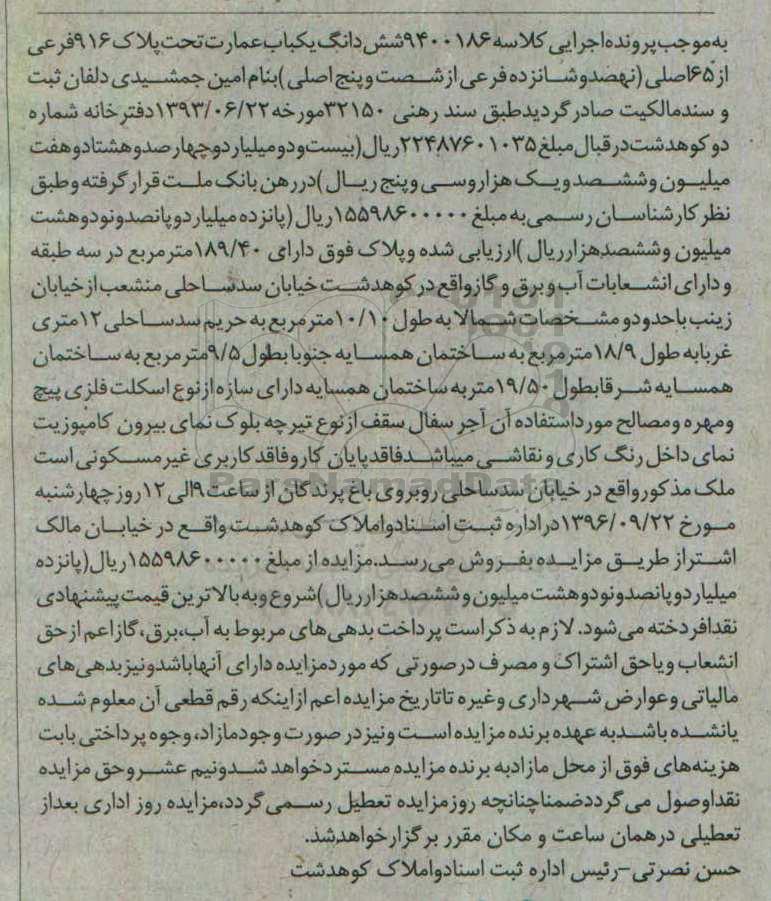 به‌موجب پرونده اجرایی کلاسه ۹۴۰۰۱۸۶ شش دانگ یکباب عمارت تحت پلاک ۹۱۶ فرعی
از ۶۵ اصلی (نهصد و شانزده فرعی از شصت و پنج اصلی) بنام امین جمشیدی دلفان ثبت
و سند مالکیت صادر گردید طبق سند رهنی ۳۲۱۵۰ مورخه ۱۳۹۳/۰۶/۲۲ دفترخانه شماره
دو کوهدشت در قبال مبلغ ۲۲۴۸۷۶۰۱۰۳۵ ریال (بیست و دو میلیارد و چهارصد و هشتاد و هفت
میلیون و ششصد و یک هزار و سی و پنج ریال) در رهن بانک ملت قرار گرفته و طبق
نظر کارشناسان رسمی به مبلغ ۱۵۵۹۸۶۰۰۰۰۰ ریال (پانزده میلیارد و پانصد و نود و هشت
میلیون و ششصد هزار ریال) ارزیابی شده و پلاک فوق دارای ۱۸۹/۴۰ متر مربع در سه طبقه
و دارای انشعابات آب و برق و گاز واقع در کوهدشت خیابان سدساحلی منشعب از خیابان
زینب با حدود و مشخصات شمالا به طول ۱۰/۱۰ متر مربع به حریم سدساحلی ۱۲ متری
غربا به طول ۱۸/۹ متر مربع به ساختمان همسایه جنوبا بطول ۹/۵ متر مربع به ساختمان
همسایه شرقا بطول ۱۹/۵۰ متر به ساختمان همسایه دارای سازه از نوع اسکلت فلزی پیچ
و مهره و مصالح مورد استفاده آن آجر سفال سقف از نوع تیرچه بلوک نمای بیرون کامپوزیت
نمای داخل رنگ کاری و نقاشی میباشد فاقد پایان کار و فاقد کاربری غیر مسکونی است
ملک مذکور واقع در خیابان سدساحلی روبروی باغ پرندگان از ساعت ۹ الی ۱۲ روز چهارشنبه
مورخ ۱۳۹۶/۰۹/۲۲ در اداره ثبت اسناد و املاک کوهدشت واقع در خیابان مالک
اشتر از طریق مزایده بفروش می‌رسد. مزایده از مبلغ ۱۵۵۹۸۶۰۰۰۰۰ ریال (پانزده
میلیارد و پانصد و نود و هشت میلیون و ششصد هزار ریال) شروع و به بالاترین قیمت پیشنهادی
نقدا فردخته می شود. لازم به ذکر است پرداخت بدهی های مربوط به آب، برق، گاز اعم از حق
انشعاب و یا حق اشتراک و مصرف در صورتی که مورد مزایده دارای آنها باشد و نیز بدهی های
مالیاتی و عوارض شهرداری و غیره تا تاریخ مزایده اعم از اینکه رقم قطعی آن معلوم شده
یا نشده باشد به عهده برنده مزایده است و نیز در صورت وجود مازاد، وجوه پرداختی بابت
هزینه‌های فوق از محل مازاد به برنده مزایده مسترد خواهد شد و نیم عشر و حق مزایده
نقدا وصول می گردد ضمنا چنانچه روز مزایده تعطیل رسمی گردد، مزایده روز اداری بعد از
تعطیلی در همان ساعت و مکان مقرر برگزار خواهد شد.
حسن نصرتی-رئیس اداره ثبت اسناد و املاک کوهدشت
ParsNamadData